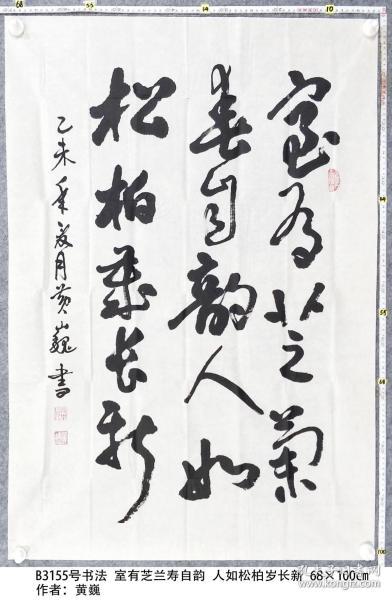 室有芝兰
寿自韵人如
松柏岁长新
乙未年夏月黄巍书
B3155号书法 室有芝兰寿自韵 人如松柏岁长新 68×100cm
作者：黄巍